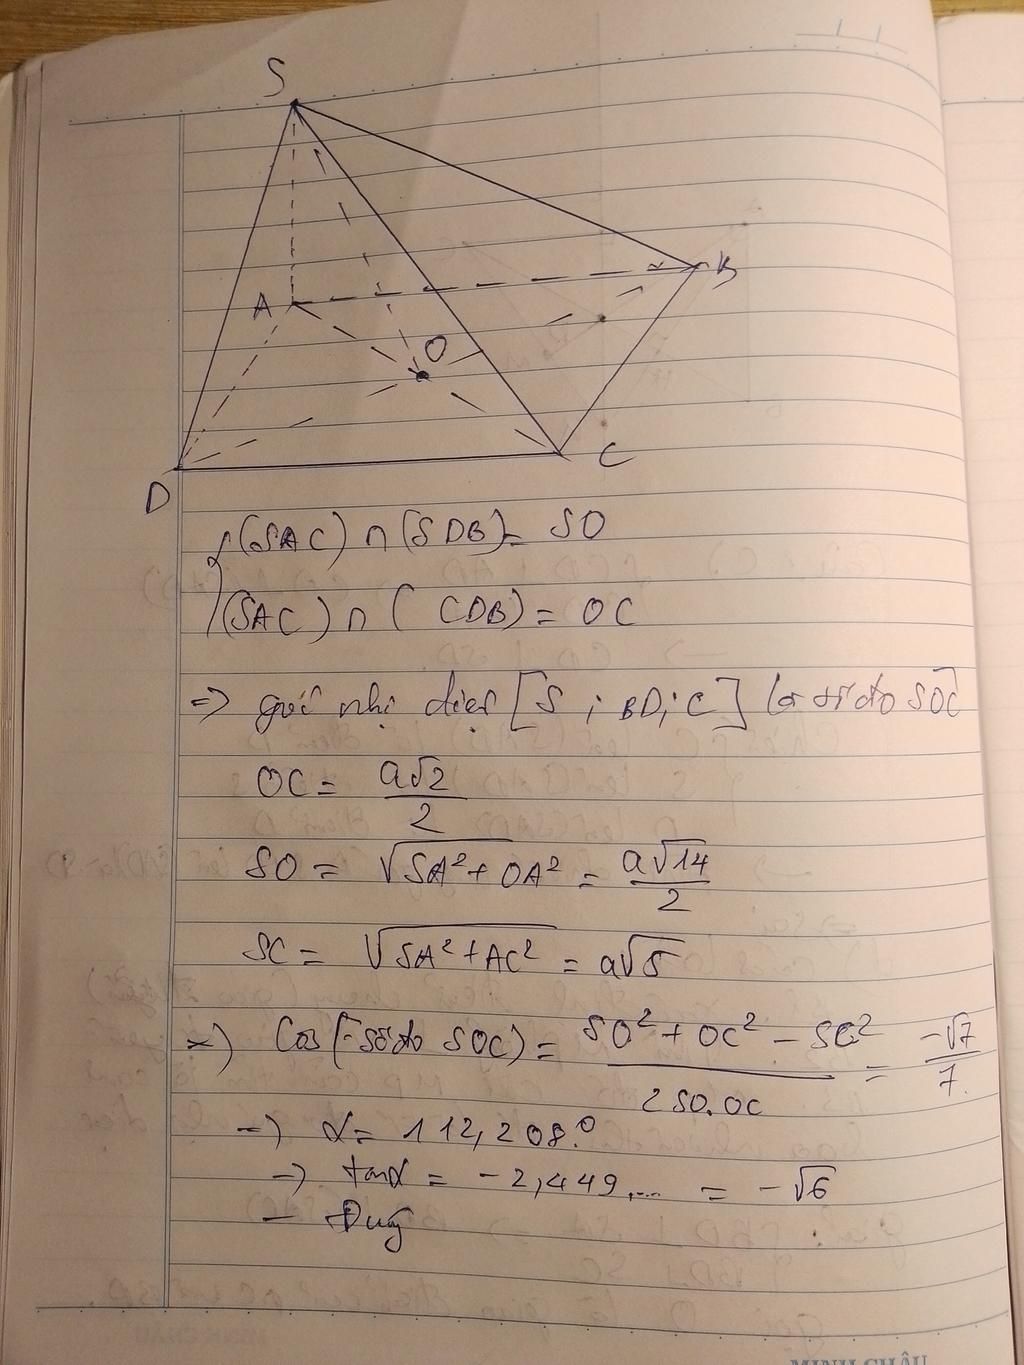 S
A
B
O
D
C
{(SAC) ∩ (SDB) = SO
(SAC) ∩ ( CDB) = OC
=> góc nhị diện [S ; BD; C] là số đo SOC
OC = a√2/2
SO = √(SA² + OA²) = a√14/2
SC = √(SA² + AC²) = a√5
=> Cos (số đo SOC) = (SO² + OC² - SC²)/(2 SO.OC) = -√7/7.
-> α = 112,208°
-> tanα = -2,449... = -√6
- Đúng
MINH CHÂU